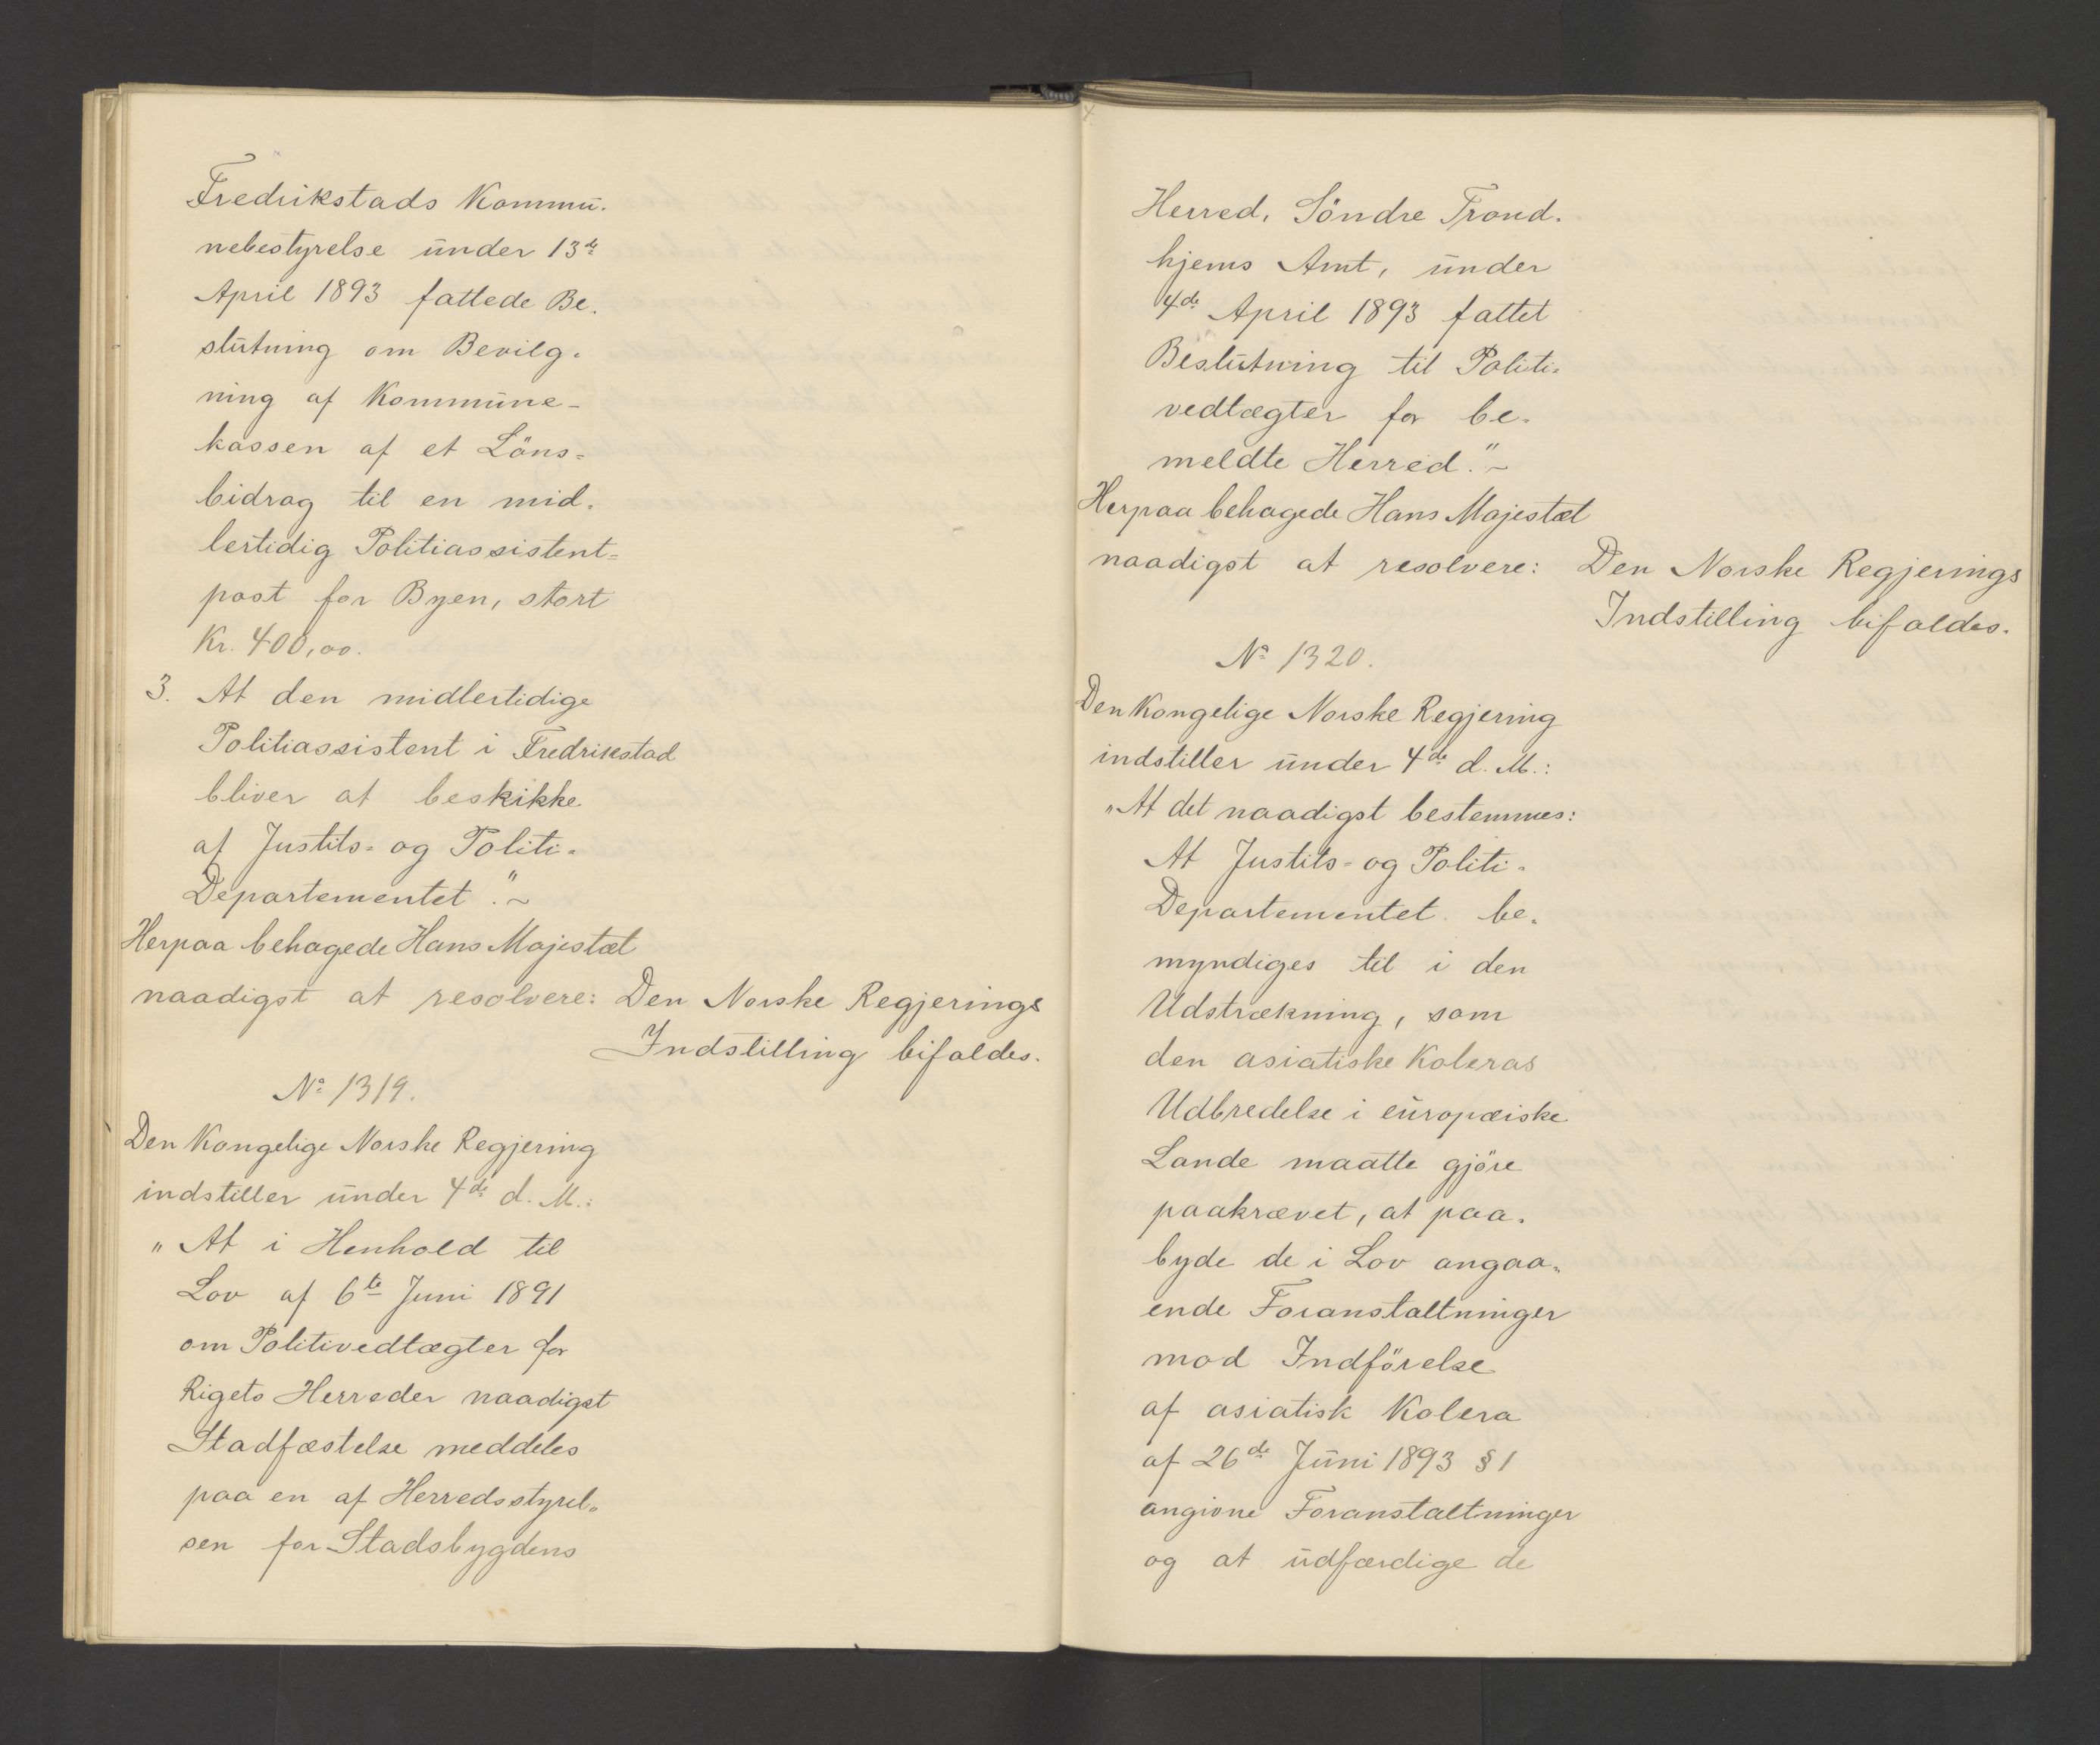 Fredrikstads Kommu-
nebestyrelse under 13de
April 1893 fattede Be-
slutning om Bevilg-
ning af Kommune-
kassen af et Löns-
bidrag til en mid-
lertidig Politiassistent-
post for Byen, stort
Kr. 400,00.
3. At den midlertidige
Politiassistent i Fredrikstad
bliver at beskikke
af Justits- og Politi-
Departementet."~
Herpaa behagede Hans Majestæt
naadigst at resolvere: Den Norske Regjerings
Indstilling bifaldes.
No 1319.
Den Kongelige Norske Regjering
indstiller under 4de d. M.:
"At i Henhold til
Lov af 6te Juni 1891
om Politivedtægter for
Rigets Herreder naadigst
Stadfæstelse meddeles
paa en af Herredsstyrel-
sen for Stadsbygdens
Herred, Söndre Trond-
hjems Amt, under
4de April 1893 fattet
Beslutning til Politi-
vedtægter for be-
meldte Herred."~
Herpaa behagede Hans Majestæt
naadigst at resolvere: Den Norske Regjerings
Indstilling bifaldes.
No 1320.
Den Kongelige Norske Regjering
indstiller under 4de d. M.:
"At det naadigst bestemmes:
At Justits- og Politi-
Departementet be-
myndiges til i den
Udstrækning, som
den asiatiske Koleras
Udbredelse i europæiske
Lande maatte gjöre
paakrævet, at paa-
byde de i Lov angaa-
ende Foranstaltninger
mod Indförelse
af asiatisk Kolera
af 26de Juni 1893 § 1
angivne Foranstaltninger
og at udfærdige de